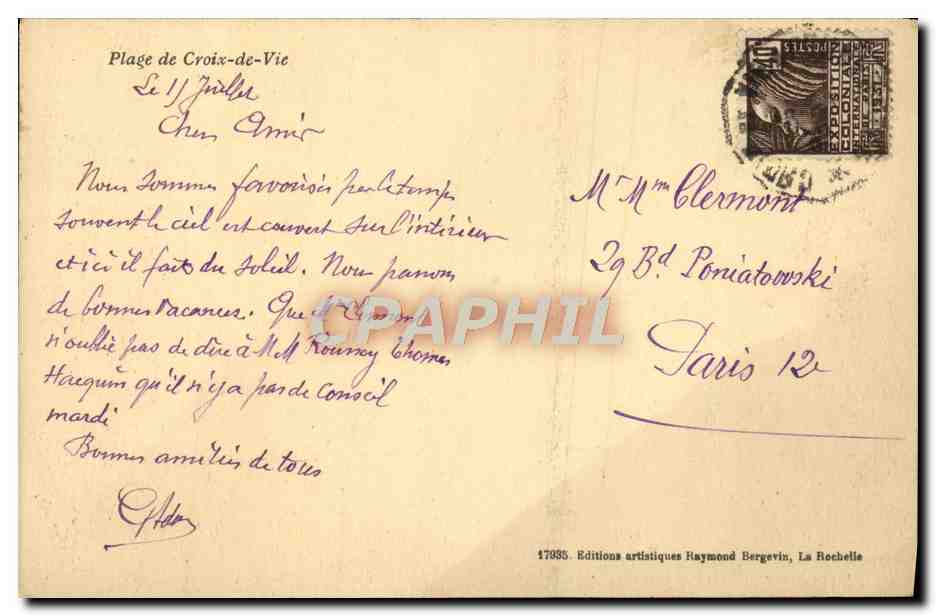 Plage de Croix-de-Vie
Le 11 Juillet
Chers Amis
Nous sommes favorisés par le temps
souvent le ciel est couvert sur l'intérieur
et ici il fait du soleil. Nous passons
de bonnes vacances. Que Mr Clermont
n'oublie pas de dire à M M Thomas
Hacquin qu'il n'y a pas de conseil
mardi
Bonnes amitiés de tous
Mr Mme Clermont
29 Bd Poniatowski
Paris 12e
POSTES
40c
EXPOSITION
COLONIALE
INTERNATIONALE
PARIS 1931
CPAPHIL
17935. Editions artistiques Raymond Bergevin, La Rochelle